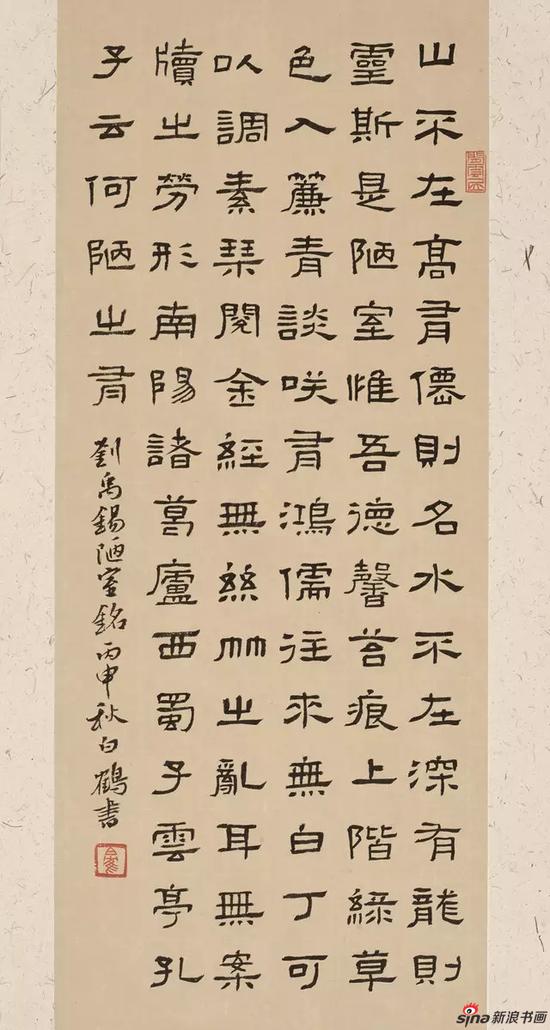 山不在高有僊則名水不在深有龍則
靈斯是陋室惟吾德馨苔痕上階綠草
色入簾青談咲有鴻儒往來無白丁可
以調素琴閱金經無絲竹之亂耳無案
牘之勞形南陽諸葛廬西蜀子雲亭孔
子云何陋之有
劉禹錫陋室銘丙申秋白鶴書
sina新浪书画